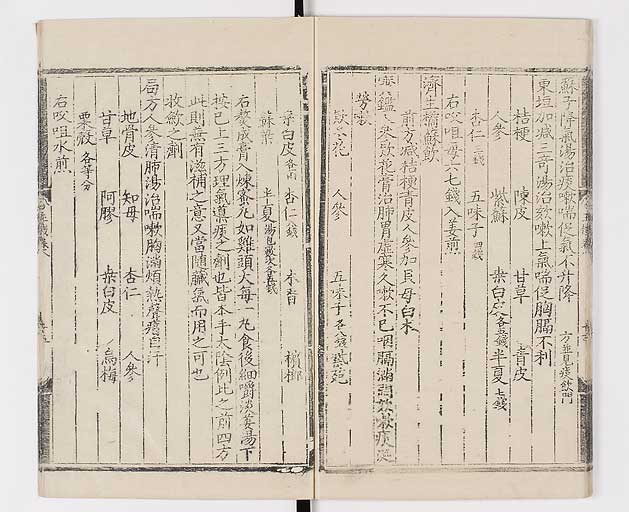 蘇子降氣湯治痰嗽喘促氣不升降 方並見痰飮門
東垣加減三奇湯治欬嗽上氣喘促胸膈不利
桔梗 陳皮 甘草 青皮
人參 紫蘇 桑白皮各五錢 半夏七錢
杏仁三錢 五味子四錢
右㕮咀每六七錢入姜煎
濟生橘蘇飮
前方減桔梗青皮人參加貝母白朮
寶鑑人參欬花膏治肺胃虛寒久嗽不已咽膈滿悶欬嗽痰涎
欬冬花 人參 五味子 紫菀
桑白皮各一兩 杏仁 木香 檳榔
蘇葉 半夏湯各五錢
右爲膏入煉蜜丸如雞頭大每一丸食後細嚼淡姜湯下
按已上三方理氣導痰之劑也皆本手太陰例此之前四方
此則兼有滋補之意又當隨臟氣而用之可也
收斂之劑
局方人參清肺湯治喘嗽胸滿煩熱聲痰自汗
地骨皮 知母 杏仁 人參
甘草 阿膠 桑白皮 烏梅
粟殼各等分
右㕮咀水煎